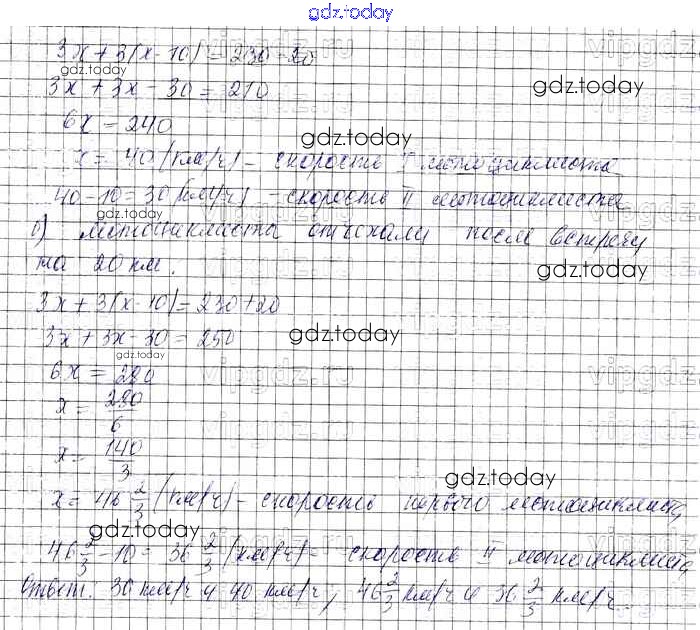 gdz.today
3x + 3(x - 10) = 230 - 20
3x + 3x - 30 = 210
6x = 240
x = 40 (км/ч) - скорость I мотоциклиста
40 - 10 = 30 (км/ч) - скорость II мотоциклиста
б) мотоциклиста отъехали после встречу
на 20 км.
3x + 3(x - 10) = 230 + 20
3x + 3x - 30 = 250
6x = 280
x = 280/6
x = 140/3
x = 46 2/3 (км/ч) - скорость первого мотоциклиста
46 2/3 - 10 = 36 2/3 (км/ч) - скорость II мотоциклиста
Ответ: 30 км/ч и 40 км/ч, 46 2/3 км/ч и 36 2/3 км/ч.
gdz.today
gdz.today
gdz.today
gdz.today
gdz.today
gdz.today
gdz.today
gdz.today
gdz.today
vipgdz.ru
vipgdz.ru
vipgdz.ru
vipgdz.ru